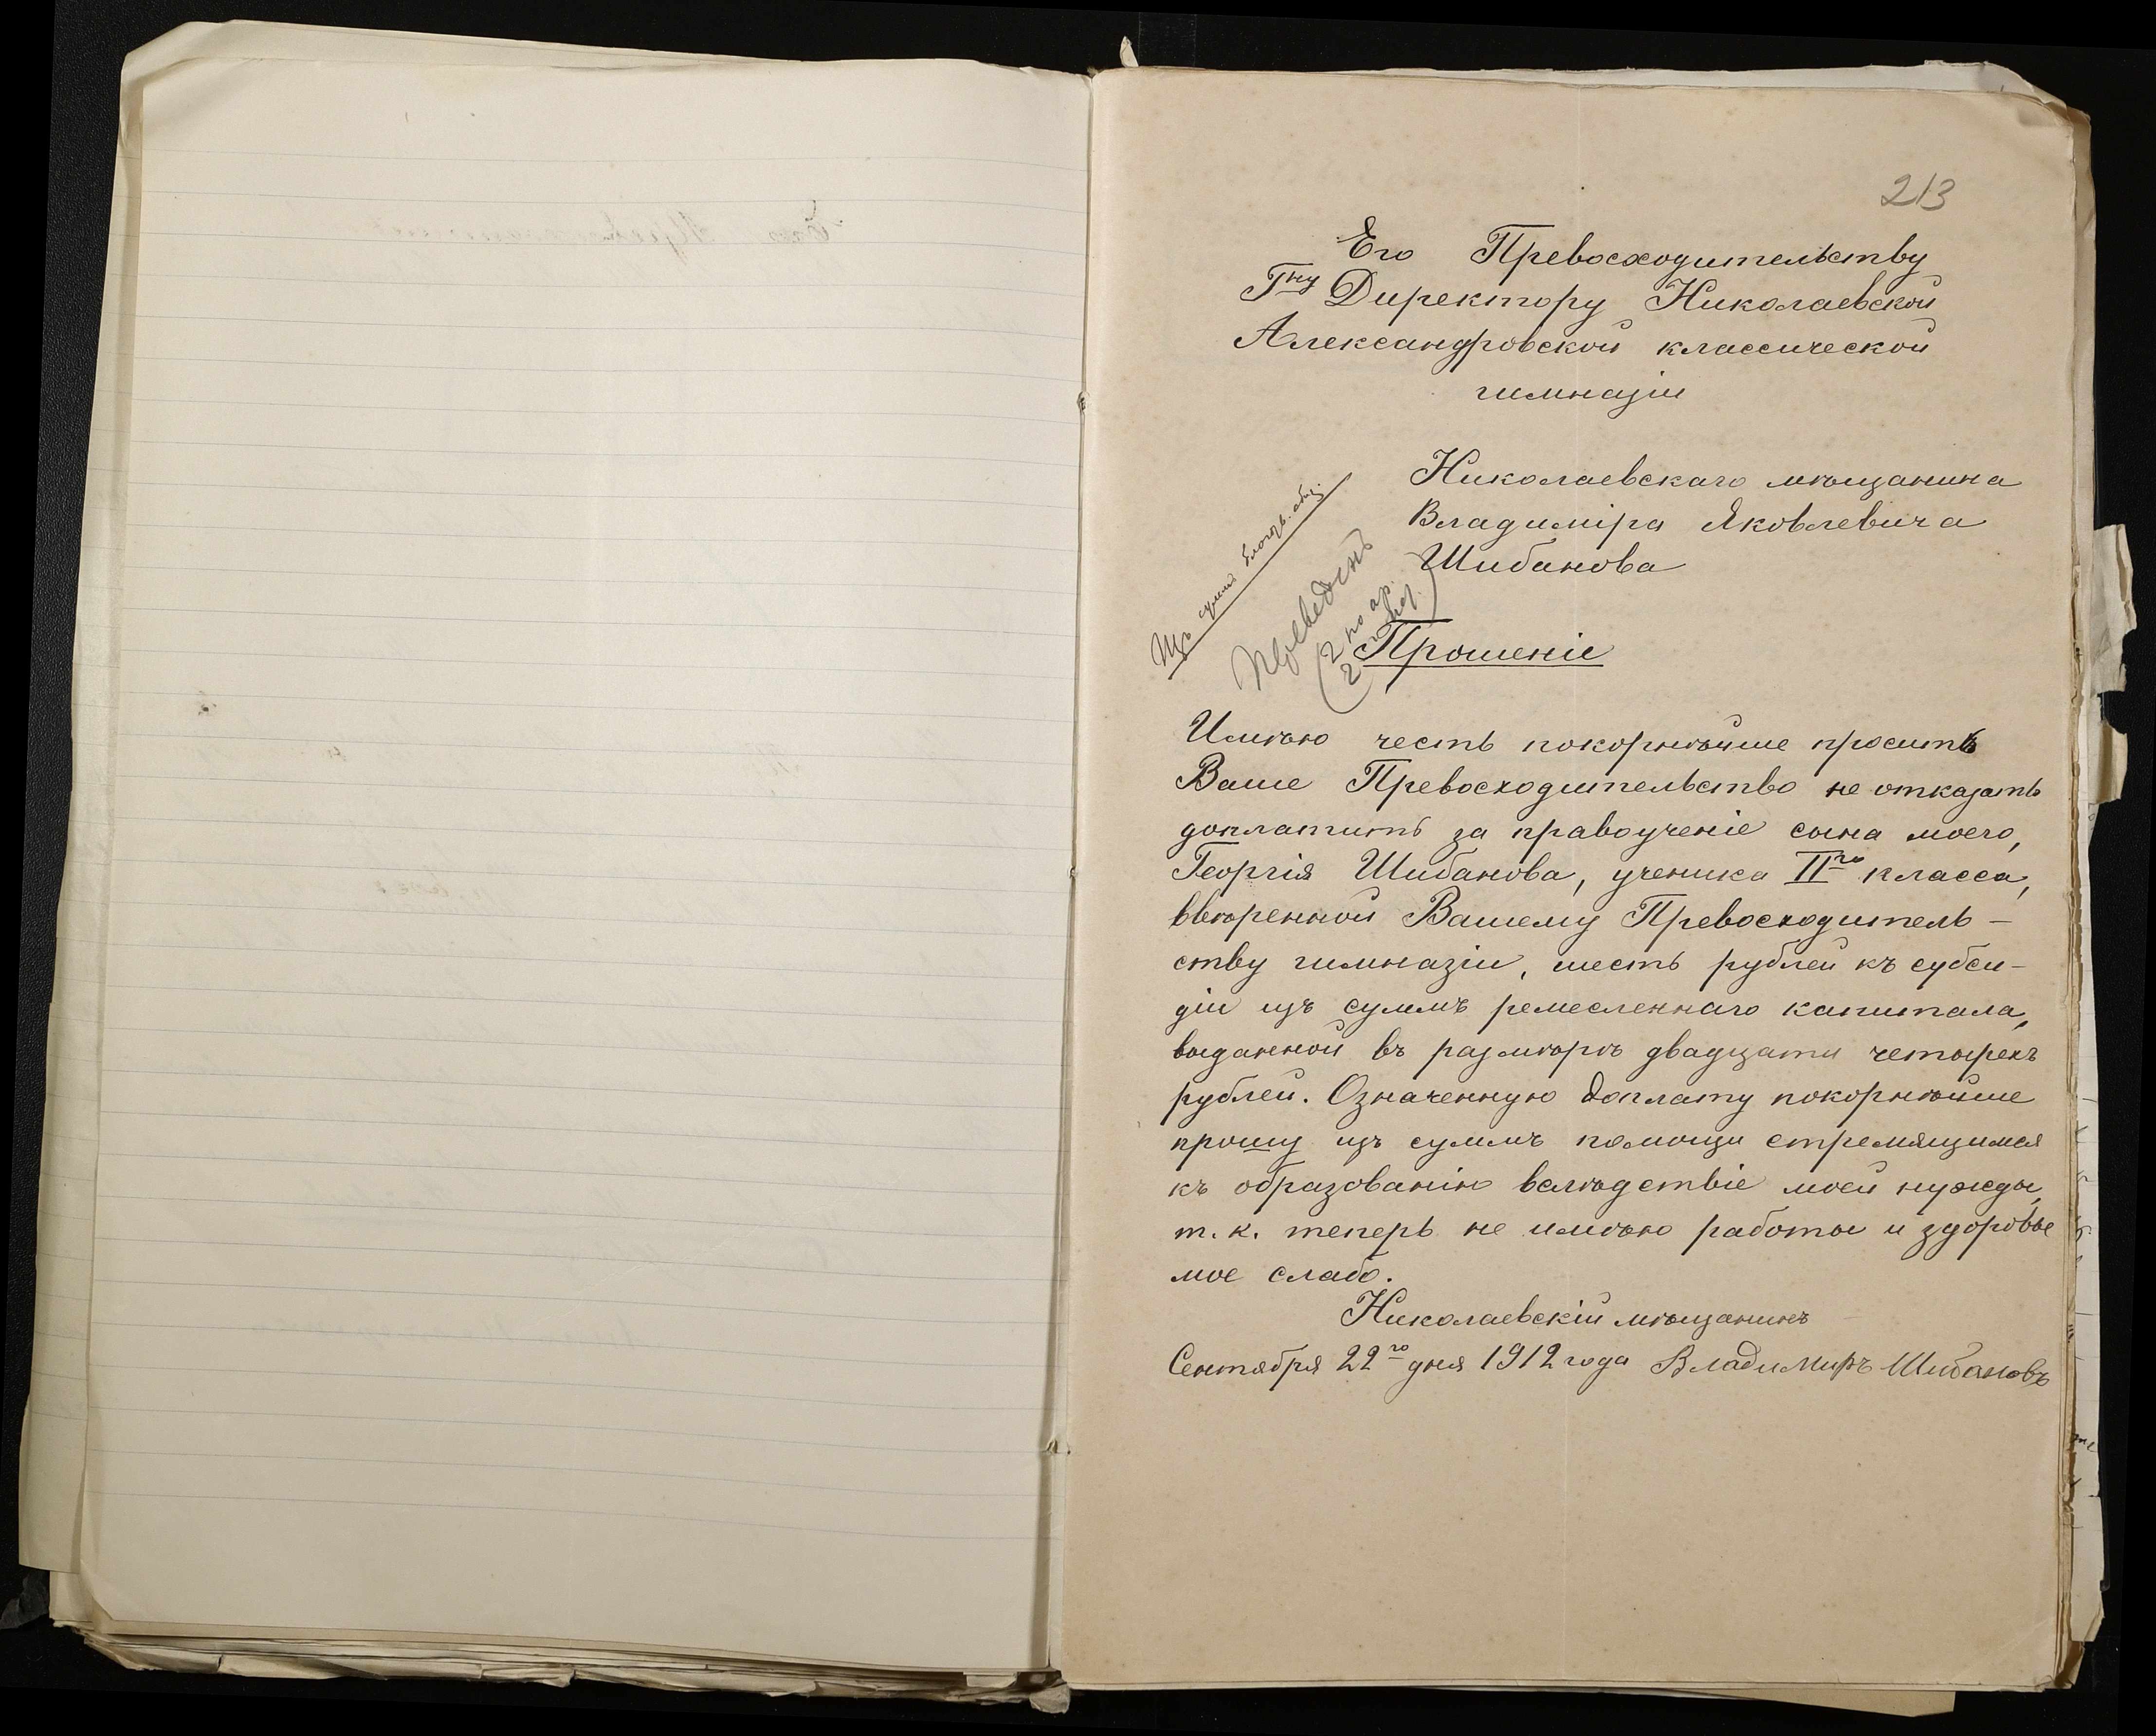 213
Его Превосходительству
Гну Директору Николаевской
Александровской классической
гимназіи
Николаевскаго мѣщанина
Владиміра Яковлевича
Шибанова
Изъ суммъ
Переведенъ
(2 по ар.
2 по
Прошеніе
Имѣю честь покорнѣйше просить
Ваше Превосходительство не отказать
доплатить за правоученіе сына моего,
Георгія Шибанова, ученика IIго класса,
ввѣренной Вашему Превосходитель-
ству гимназіи, шесть рублей къ субси-
діи изъ суммъ ремесленнаго капитала,
выданной въ размѣрѣ двадцати четырехъ
рублей. Означенную доплату покорнѣйше
прошу изъ суммъ помощи стремящимся
къ образованію вслѣдствіе моей нужды,
т. к. теперь не имѣю работы и здоровье
мое слабо.
Николаевскій мѣщанинъ
Сентября 22го дня 1912 года Владимиръ Шибановъ